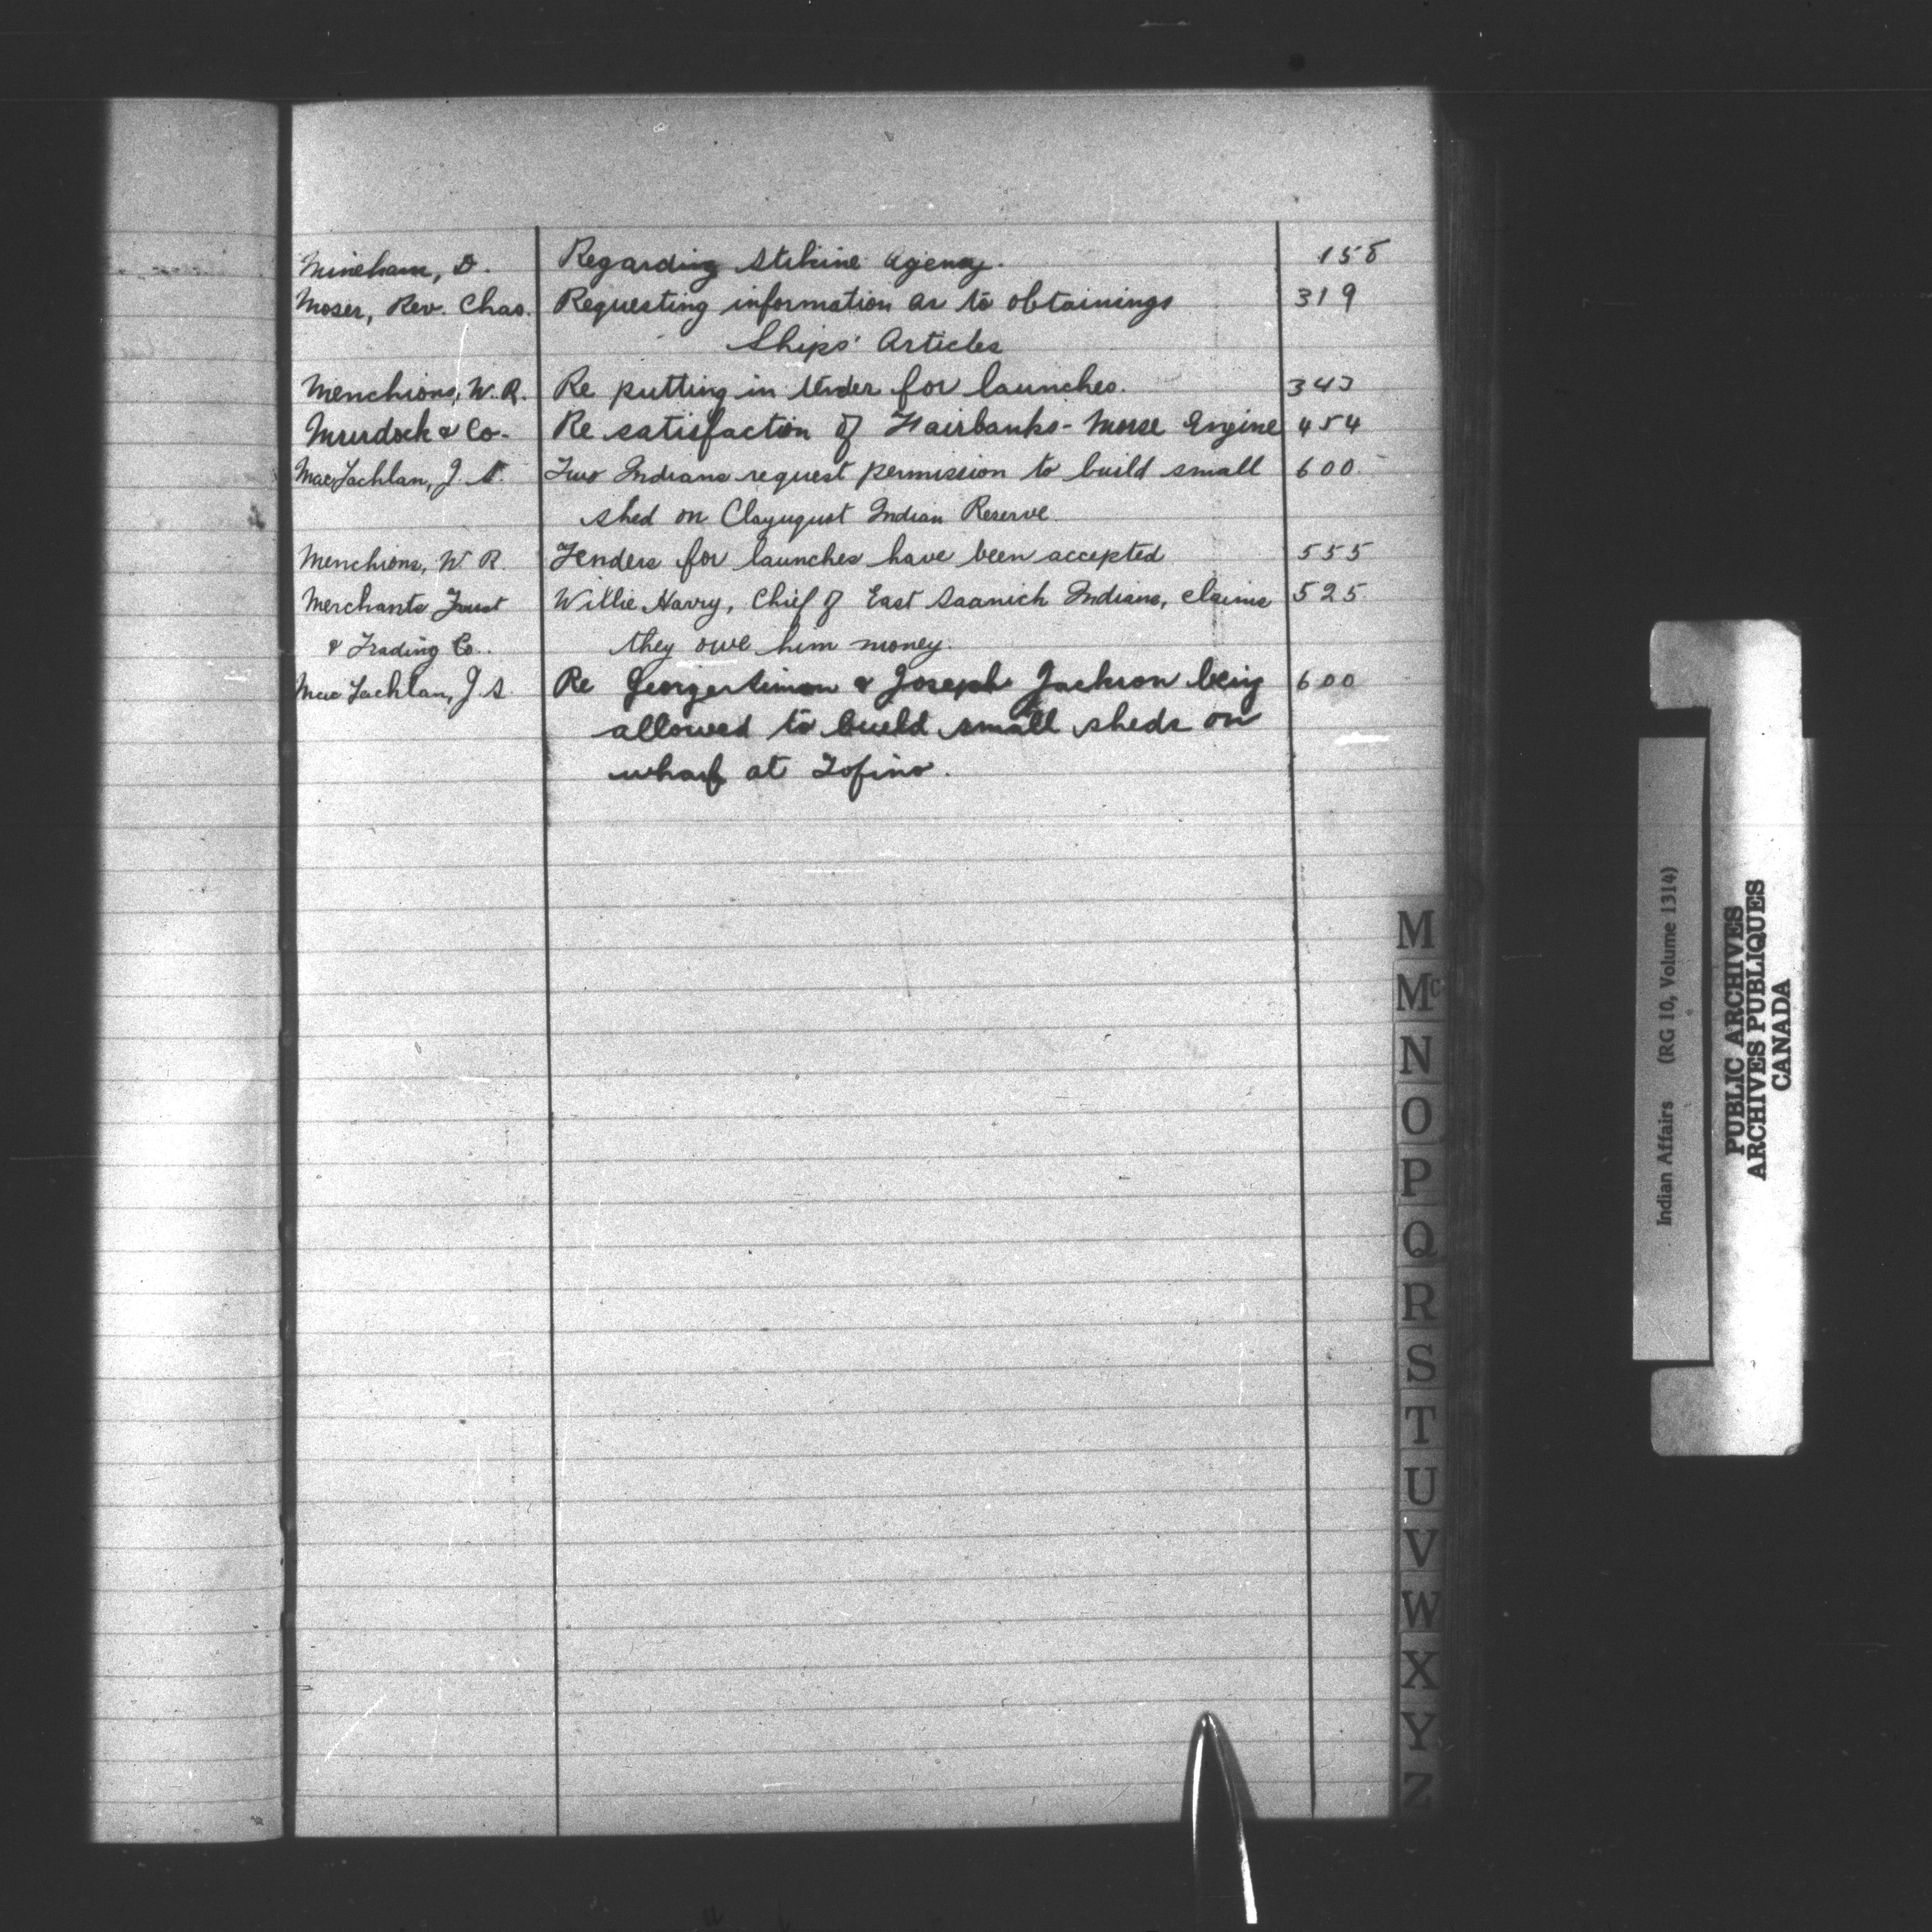 Mineham, D. Regarding Stikine Agency. 158
Moser, Rev. Chas. Requesting information as to obtainings 319
Ships' Articles
Menchions, W. R. Re putting in tender for launches. 343
Murdock & Co. Re satisfaction of Fairbanks-Morse Engine 454
MacLachlan, J. S. Two Indians request permission to build small 600
shed on Clayuquot Indian Reserve.
Menchions, W. R. Tenders for launches have been accepted 555
Merchants Trust Willie Harry, Chief of East Saanich Indians, claims 525
& Trading Co.. they owe him money.
MacLachlan, J. S. Re George Simon & Joseph Jackson being 600
allowed to build small sheds on
wharf at Tofino.
M
Mc
N
O
P
Q
R
S
T
U
V
W
X
Y
Z
Indian Affairs (RG 10, Volume 1314)
PUBLIC ARCHIVES
ARCHIVES PUBLIQUES
CANADA